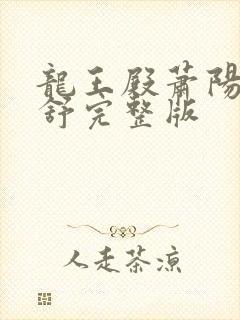 龍王殿蕭陽
舒完整版
人走茶凉